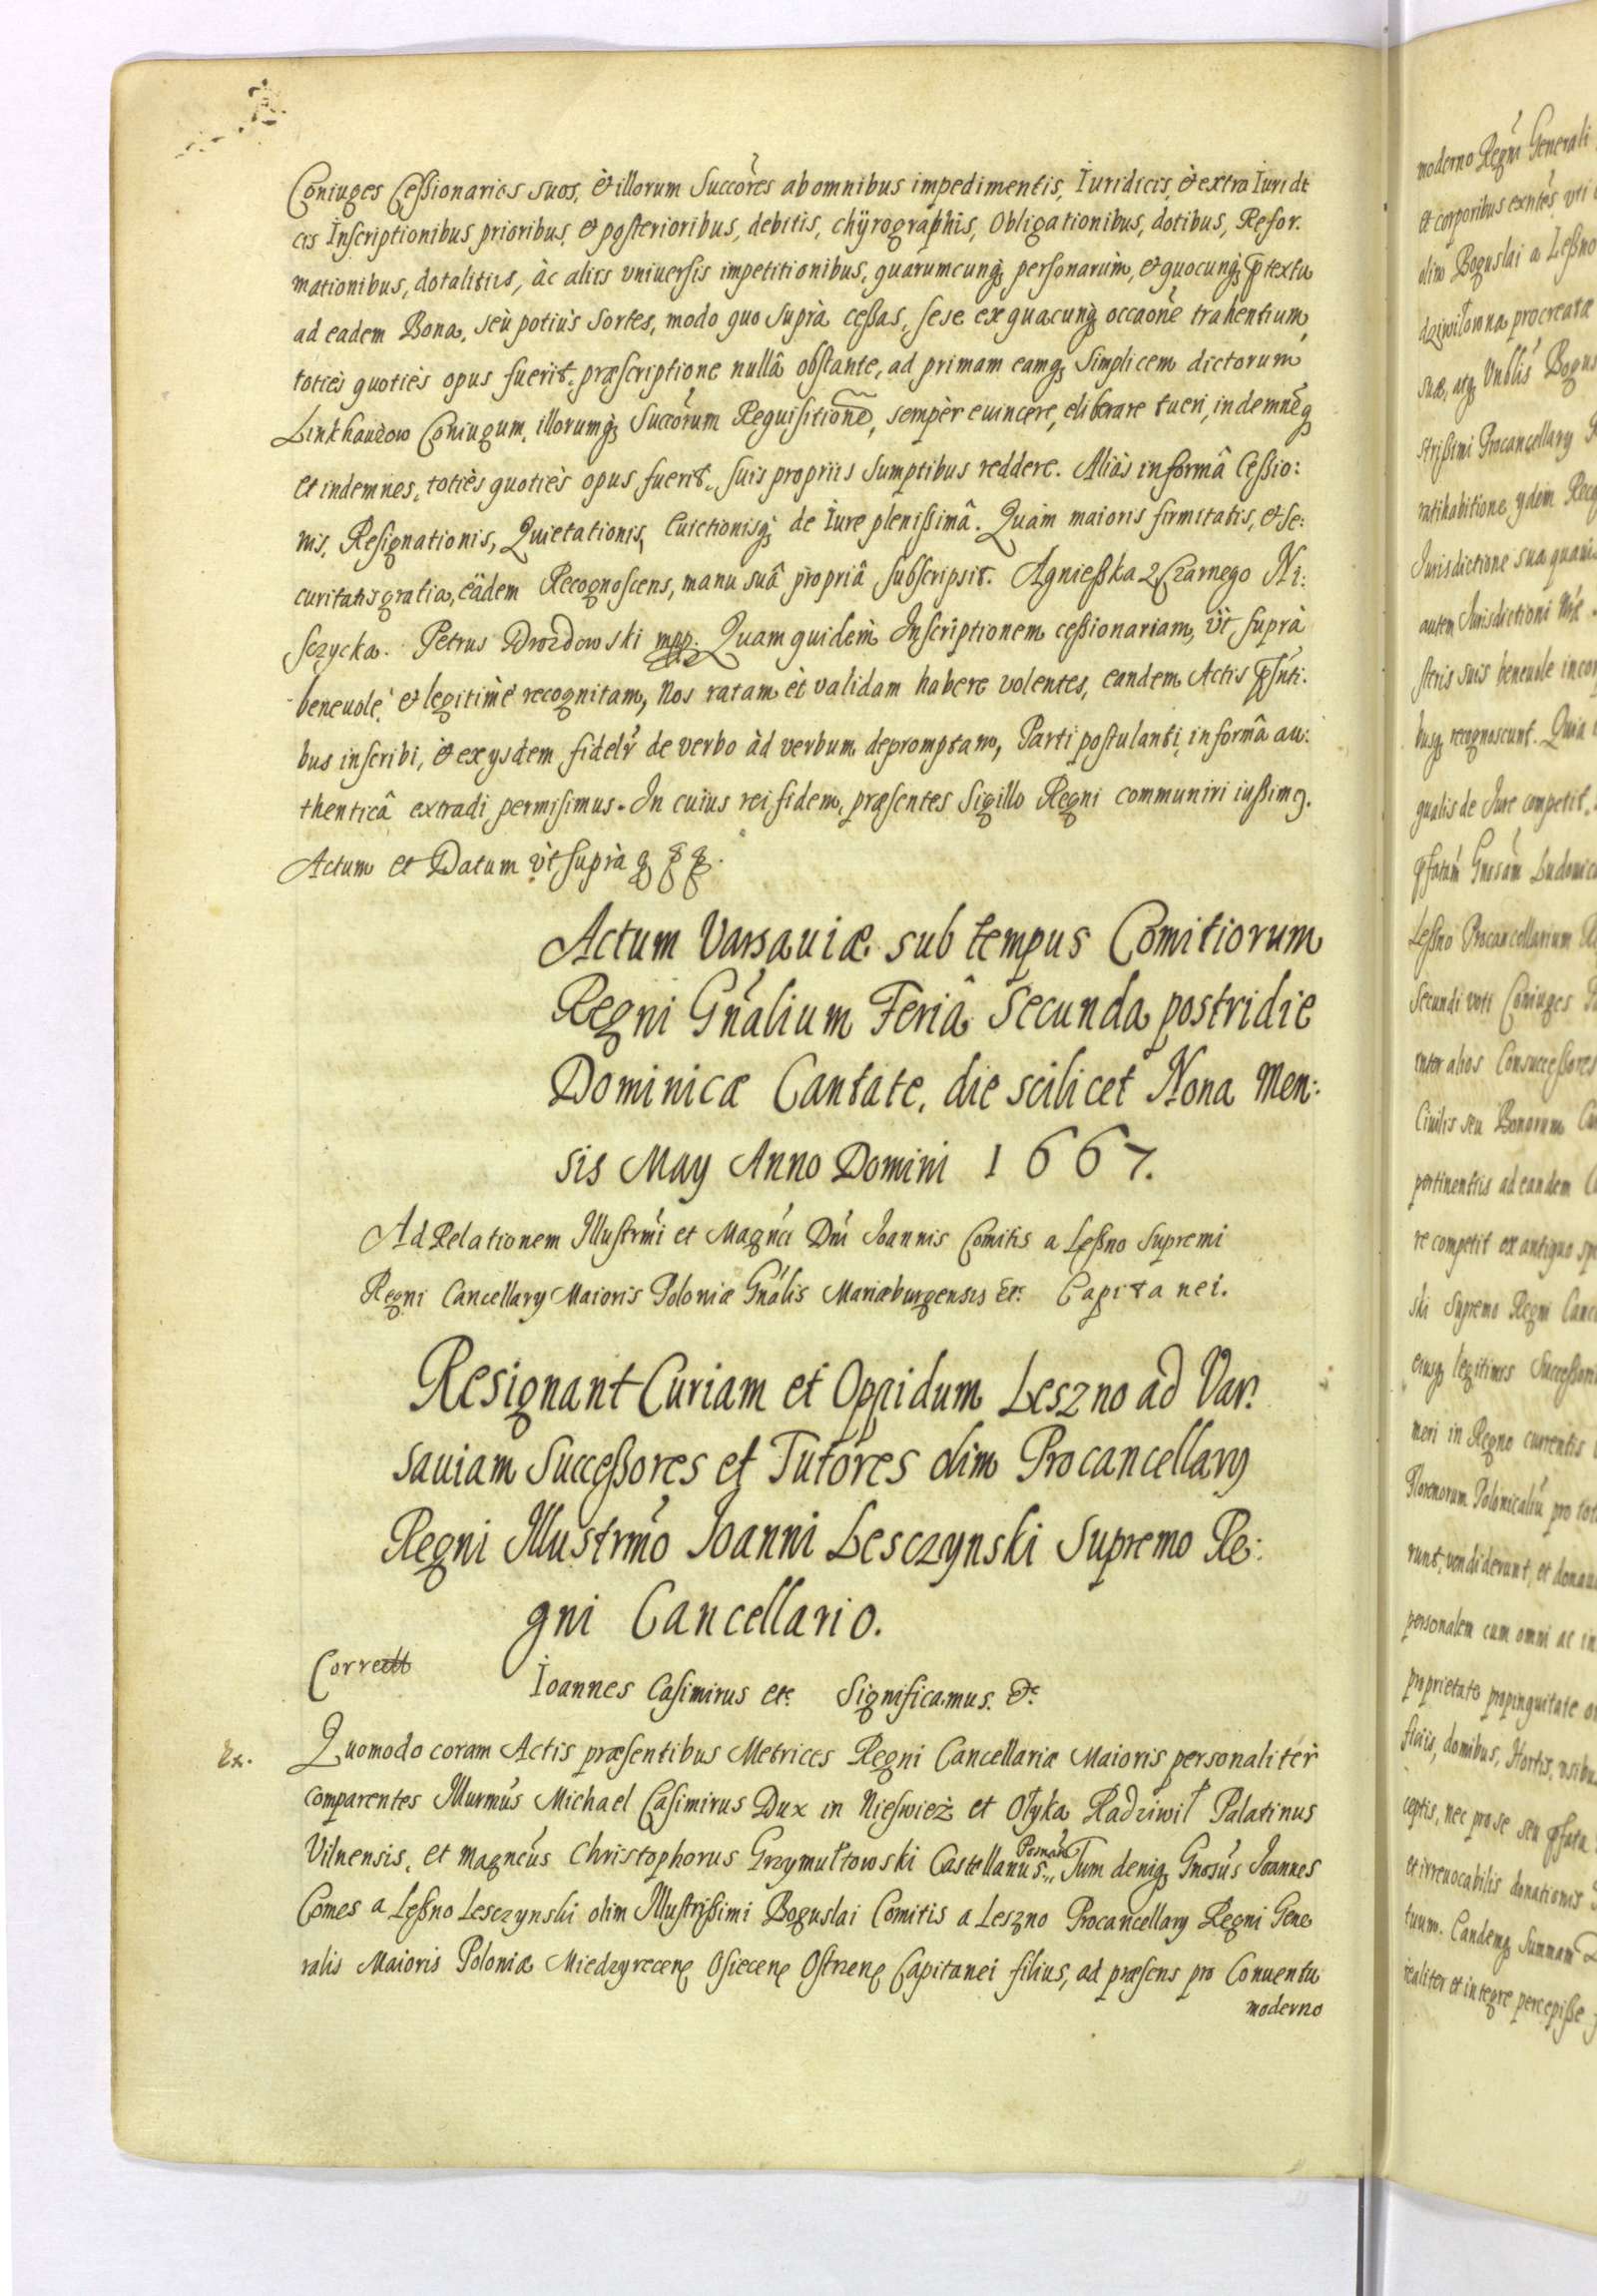 Coniuges Ceßionarios suos, et illorum Succȏres ab omnibus impedimentis, Iuridicis, et extra Iuridi
cis Inscriptionibus, prioribus, et posterioribus, debitis, chÿrographis, Obligationibus, dotibus, Refor:
mationibus, dotalitiis, àc aliis vniuersis impetitionibus, quarumcunq; personarùm, et quocunq; p̄textu
ad eadem Bona, seù potiùs Sortes, modo quo suprà ceßas, sese ex quacunq; occaōne trahentium,
totiès quotiès opus fuerit, præscriptione nullâ obstante, ad primam eamq; Simplicem dictorum
Linkhauzow Coniugum, illorumq; Succōrum Requisitione, sempèr euincere, eliberare tueri, indemnēq;
et indemnes, totiès quotiès opus fuerit, suis propriis Sumptibus reddere. Aliàs in formâ Ceßio:
nis, Resignationis, Quietationis, Euictionisq; de Iure plenißimâ. Quàm maioris firmitatis, et se:
curitatis gratia, eâdem Recognoscens, manu suâ propriâ subscripsit. Agnießka z Czarnego Ni:
sczycka. Petrus Drozdowski mpp. Quam quidem Inscriptionem ceßionariam, vt suprà
beneuolè, et legitimè recognitam, Nos ratam et validam habere volentes, eandem Actis p̄snti:
bus inscribi, et ex ysdem fidelr̄ de verbo àd verbum depromptam, Parti postulanti in formâ au:
thenticâ extradi permisimus. In cuius rei fidem, præsentes Sigillo Regni communiri iußimꝰ.
Actum et Datum vt suprà
Actum Varsauiæ sub tempus Comitiorum
Regni Gn̄alium Feriâ Secunda postridie
Dominicæ Cantate, die scilicet Nona Men:
sis May Anno Domini 1667.
Ad Relationem Illustrm̄i et Magn̄ci Dn̄i Ioannis Comitis a Leßno Supremi
Regni Cancellary Maioris Poloniæ Gn̄alis Mariæburgensis etc. Capitanei.
Resignant Curiam et Oppidum Leszno ad Var:
sauiam Succeßores et Tutores olim Procancellary
Regni Illustrm̄o Ioanni Lesczynski Supremo Re:
gni Cancellario.
Correcta
Ioannes Casimirus etc. Significamus. etc.
Ex.
Quomodo coram Actis præsentibus Metrices Regni Cancellariæ Maioris personalitèr
comparentes Illurmus Michael Casimirus Dux in Nieswież et Ołyka Radziwił Palatinus
Vilnensis, et Magncus Christophorus Grzymułtowski Castellanus Posnan̄. Tum deniq; Gnosus Ioannes
Comes a Leßno Lesczynski olim Illustrißimi Boguslai Comitis a Leszno Procancellary Regni Gene
ralis Maioris Poloniæ Miedzyrecen̄ Osiecen̄ Ostrzen̄ Capitanei filius, ad præsens pro Conuentu
moderno
moderno Regni Generali
et corporibus exntes, vti
olim Boguslai a Leßno
dziwiłowna procreatæ
suæ, atq; Vnblis Bogus
strißimi Procancellary
ratihabitione ydem Reco
Iurisdictione sua quauis
autem Iurisdictioni
steris suis beneuole incor
busq; recognoscunt. Quia
qualis de Iure competit,
p̄fatam Gnosam Ludouica
Leßno Procancellarium
Secundi voti Coniuges
inter alios Consucceßores
Ciuilis seu Bonorum
pertinentiis ad eandem
re competit ex antiquo
ski Supremo Regni Canc
eiusq; legitimis Succeßori
meri in Regno currentis
Florenorum Polonicaliū pro tot
runt, vendiderunt, et donau
personalem cum omni ac in
proprietate propinquitate
ficiis, domibus, Hortis, vsibu
ceptis, nec pro se seu p̄fata
et irreuocabilis donationis
tuum. Eandemq; Summam
realiter et integre percepiße